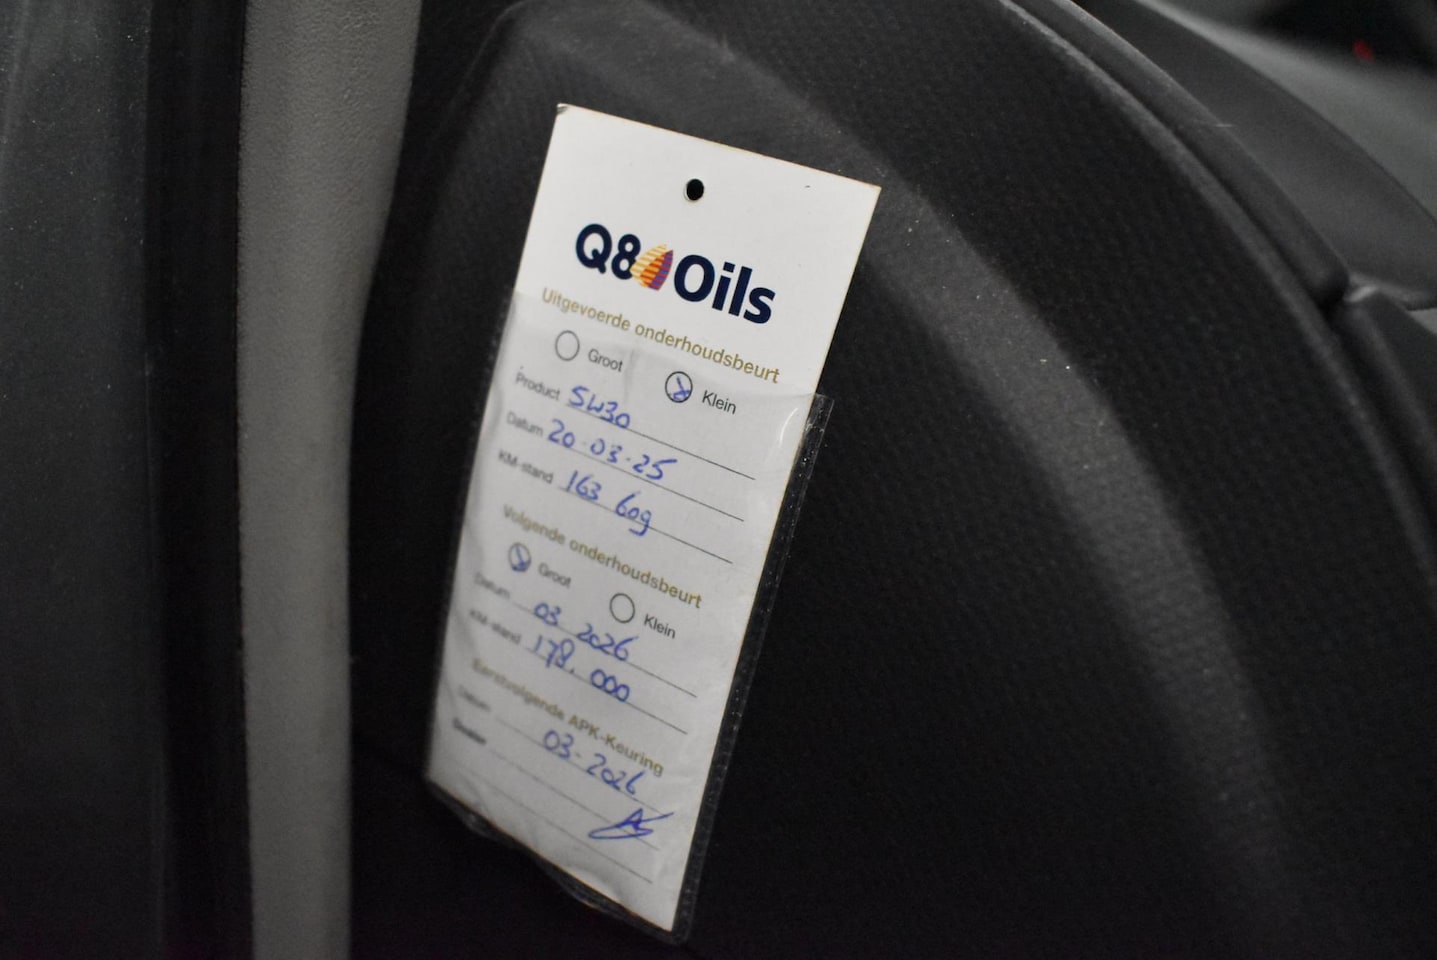 Q8 Oils
Uitgevoerde onderhoudsbeurt
Groot Klein
Product 5W30
Datum 20-03-25
KM-stand 163 609
Volgende onderhoudsbeurt
Groot Klein
Datum 03 2026
KM-stand 178.000
Eerstvolgende APK-Keuring
Datum 03-2026